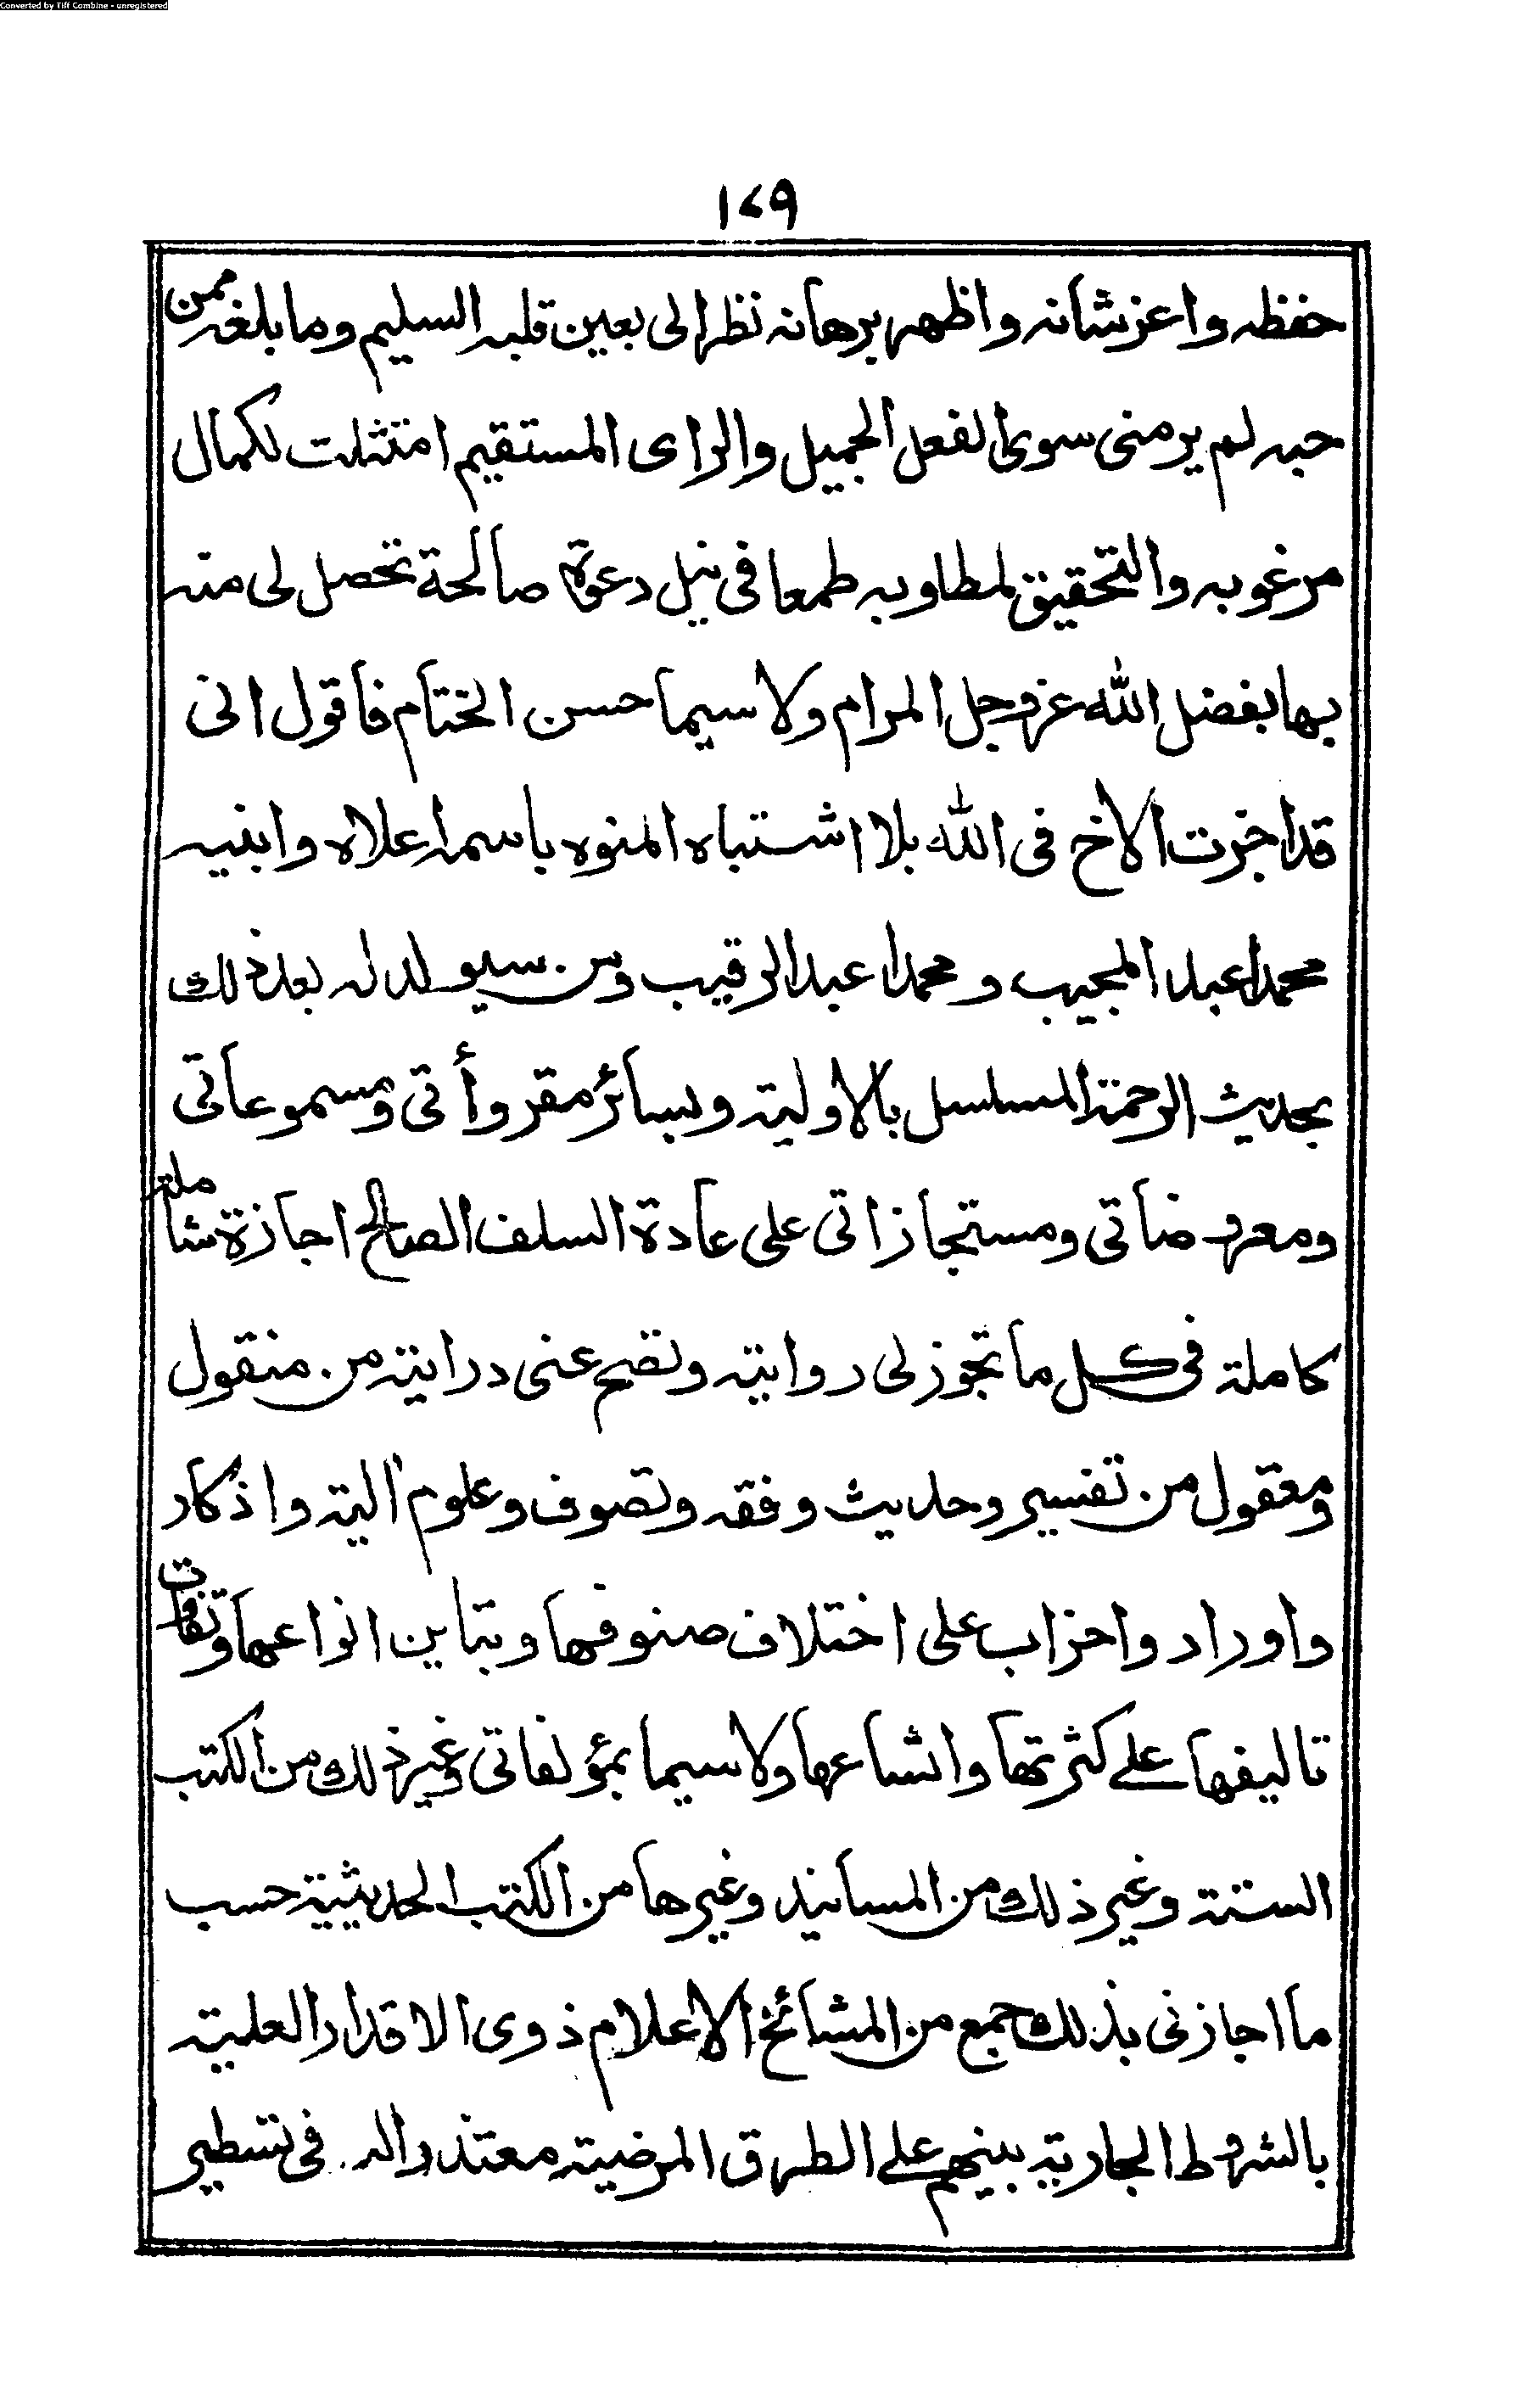 Converted by Tiff Combine - unregistered
١٧٩
حفظه واعز شانه واظهر برهانه نظرا لى بعين قلبه السليم وما بلغه ممن
حبه لم ير منى سوى الفعل الجميل والراى المستقيم امتثلت لكمال
مرغوبه والتحقيق لمطاوبه طمعا فى نيل دعوة صالحة تحصل لى منه
بها بفضل الله عز وجل المرام ولا سيما حسن الختام فاقول انى
قد اجزت الاخ فى الله بلا اشتباه المنوه باسمه اعلاه وابنيه
محمدا عبد المجيب ومحمدا عبد الرقيب ومن سيولد له بعد ذلك
بحديث الرحمة المسلسل بالاولية وبسائر مقروأتى ومسموعاتى
ومعروضاتى ومستجازاتى على عادة السلف الصالح اجازة شاملة
كاملة فى كل ما تجوز لى روايته وتصح عنى درايته من منقول
ومعقول من تفسير وحديث وفقه وتصوف وعلوم الية واذكار
واوراد واحزاب على اختلاف صنوفها وتباين انواعها وتفاوت
تاليفها على كثرتها واتساعها ولا سيما بمؤلفاتى وغير ذلك من الكتب
الستة وغير ذلك من المسانيد وغيرها من الكتب الحديثية حسب
ما اجازنى بذلك جمع من المشائخ الاعلام ذوى الاقدار العلية
بالشروط الجارية بينهم على الطرق المرضية معتذرا له فى تسطير